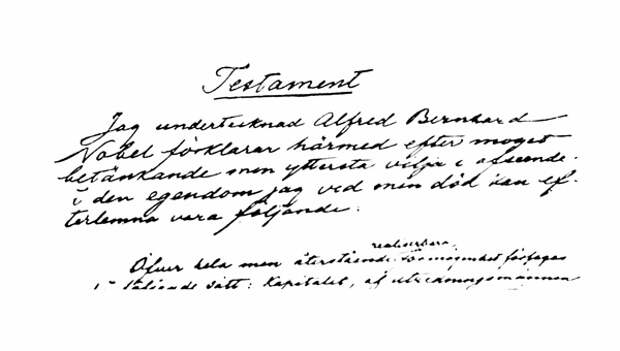 Testament
Jag undertecknad Alfred Bernhard
Nobel förklarar härmed efter moget
betänkande min yttersta vilja i afseende
å den egendom jag vid min död kan ef-
terlemna vara följande:
realiserbara
Öfver hela min återstående förmögenhet förfogas
på följande sätt: Kapitalet, af utredningsmännen